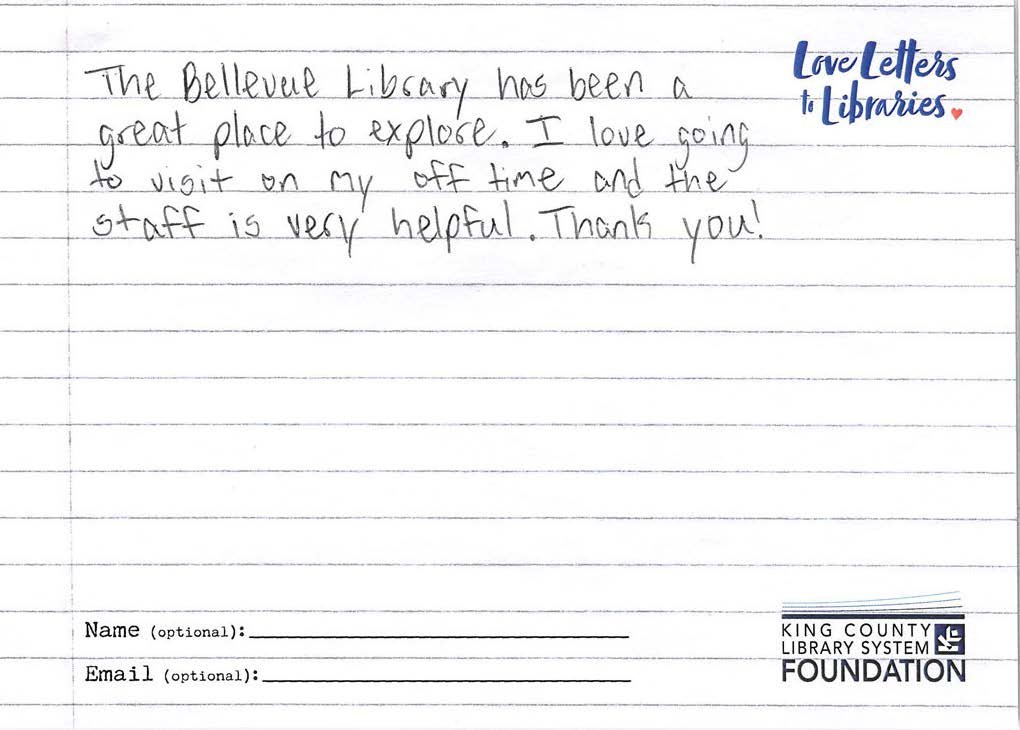 The Bellevue Library has been a
great place to explore. I love going
to visit on my off time and the
staff is very helpful. Thank you!
Love Letters
to Libraries
Name (optional):
Email (optional):
KING COUNTY
LIBRARY SYSTEM
FOUNDATION